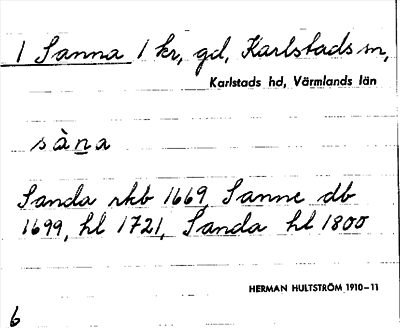 1 Sanna 1 kr, gd, Karlstads sn,
Karlstads hd, Värmlands län
sàna
Sanda rkb 1669, Sanne db
1699, hl 1721, Sanda hl 1800
HERMAN HULTSTRÖM 1910–11
6